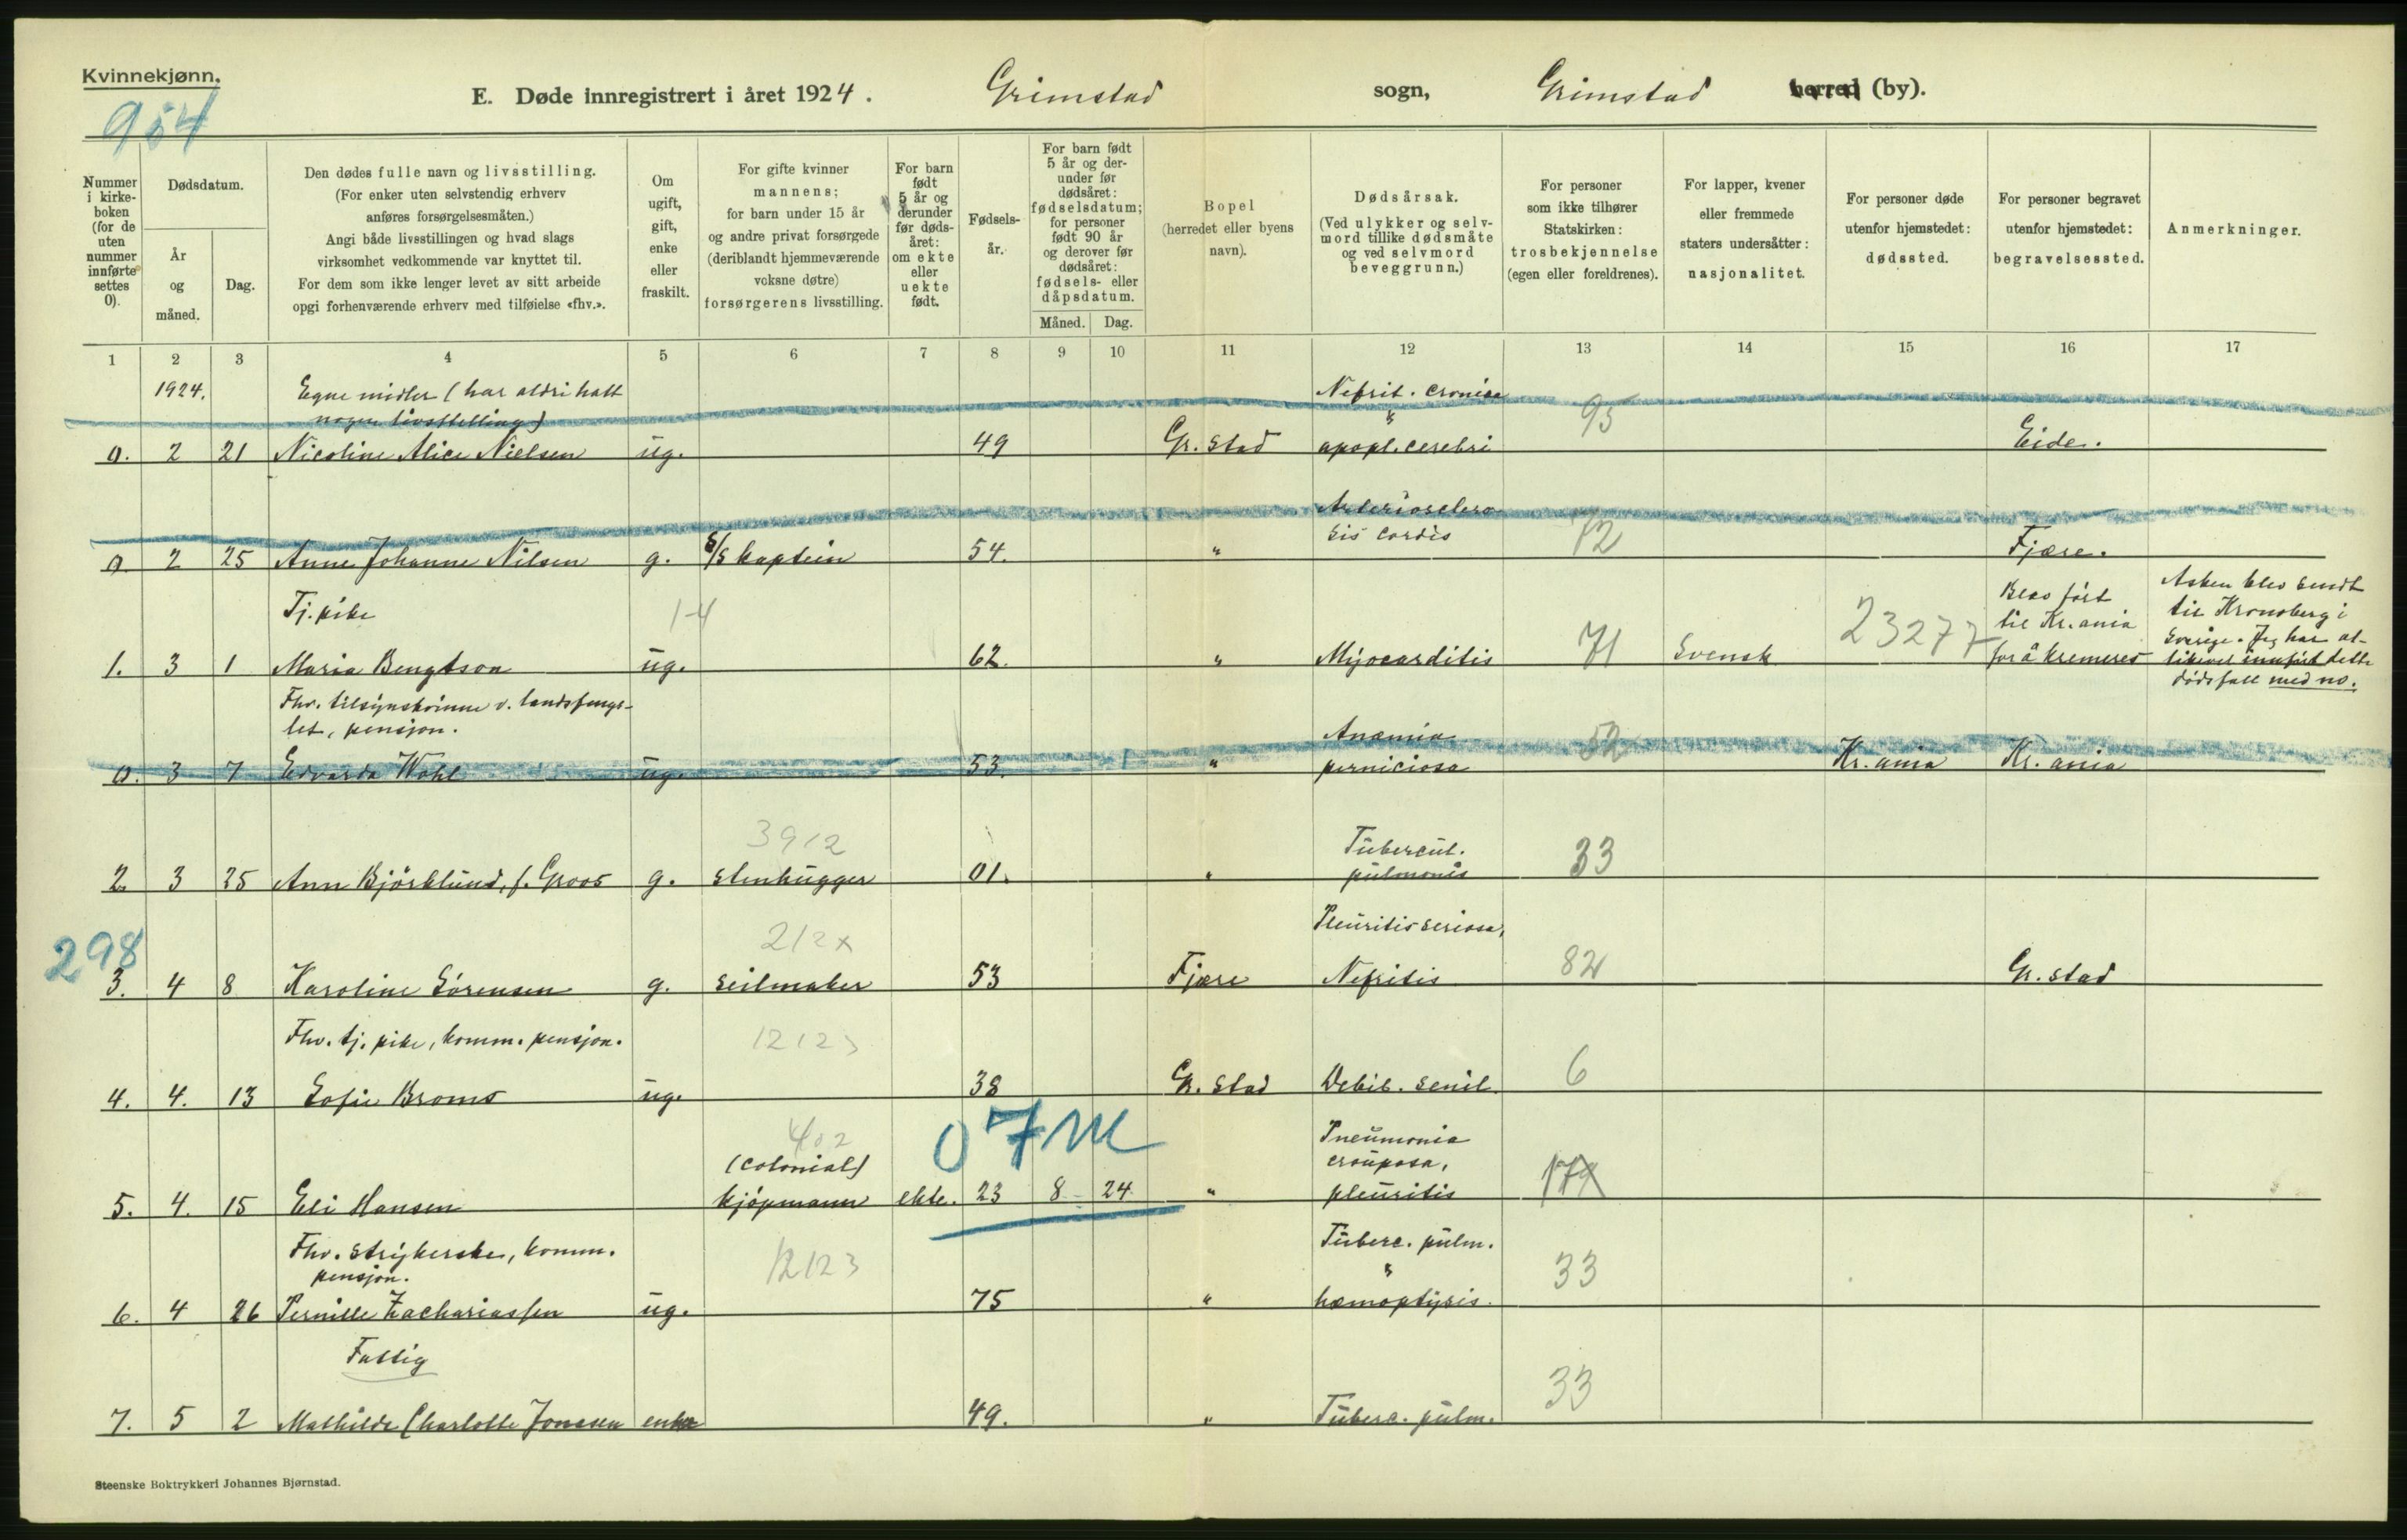 Kvinnekjønn.
904
E. Døde innregistrert i året 1924. Grimstad sogn, Grimstad herred (by).
Nummer i kirkeboken (for de uten nummer innførte settes 0).
Dødsdatum.
År og måned.
Dag.
Den dødes fulle navn og livsstilling.
(For enker uten selvstendig erhverv
anføres forsørgelsesmåten.)
Angi både livsstillingen og hvad slags
virksomhet vedkommende var knyttet til.
For dem som ikke lenger levet av sitt arbeide
opgi forhenværende erhverv med tilføielse «fhv.».
Om
ugift,
gift,
enke
eller
fraskilt.
For gifte kvinner
mannens;
for barn under 15 år
og andre privat forsørgede
(deriblandt hjemmeværende
voksne døtre)
forsørgerens livsstilling.
For barn
født
5 år og
derunder
før døds-
året:
om ekte
eller
uekte
født.
Fødsels-
år.
For barn født
5 år og der-
under før
dødsåret:
fødselsdatum;
for personer
født 90 år
og derover før
dødsåret:
fødsels- eller
dåpsdatum.
Måned. Dag.
Bopel
(herredet eller byens
navn).
Dødsårsak.
(Ved ulykker og selv-
mord tillike dødsmåte
og ved selvmord
beveggrunn.)
For personer
som ikke tilhører
Statskirken:
trosbekjennelse
(egen eller foreldrenes).
For lapper, kvener
eller fremmede
staters undersåtter:
nasjonalitet.
For personer døde
utenfor hjemstedet:
dødssted.
For personer begravet
utenfor hjemstedet:
begravelsessted.
Anmerkninger.
1 2 3 4 5 6 7 8 9 10 11 12 13 14 15 16 17
1924. Egne midler (har aldri hatt Nefrit. cronica
nogen livsstelling) 95
0. 2 21 Nicoline Alice Nielsen ug. 49 Gr.stad apopl. cerebri Eide.
Arteriosclero
sis cordis 12
0 2 25 Anne Johanne Nilsen g. S/S kaptein 54. " Fjære.
Tj. pike 14 23277 Blev ført til Kr.ania for å kremeres
Asken blev sendt
til Kronoberg i
Sverige. Jeg har al-
likevel innført dette
dødsfall med no.
1. 3 1 Maria Bengtson ug. 62. " Myocarditis 71 Svensk
Fhv. tilsynskvinne v. landsfengs-
let, pensjon. Anæmia 52
0. 3 7 Edvarda Wohl ug. 53. " perniciosa Kr.ania Kr.ania
3912 Tubercul. 33
2. 3 25 Ann Bjørklund, f. Groos g. stenhugger 01. " pulmonis
298 212x Pleuritis seriosa, 82
3. 4 8 Karoline Sørensen g. seilmaker 53 Fjære Nefritis Gr.stad
Fhv. tj. pike, komm. pensjon. 12123 6
4. 4. 13 Sofie Broms ug. 38 Gr.stad Debil. senil.
402 07M Pneumonia
(colonial) crouposa, 179
5. 4. 15 Eli Hansen kjøpmann ekte. 23 8 24 " pleuritis
Fhv. strykerske, komm. Tuberc. pulm.
pensjon. 12123 " 33
6. 4 26 Pernille Zachariassen ug. 75 " hæmoptysis.
Fattig 33
7. 5 2 Mathilde Charlotte Jonassen enke 49. " Tuberc. pulm.
Steenske Boktrykkeri Johannes Bjørnstad.